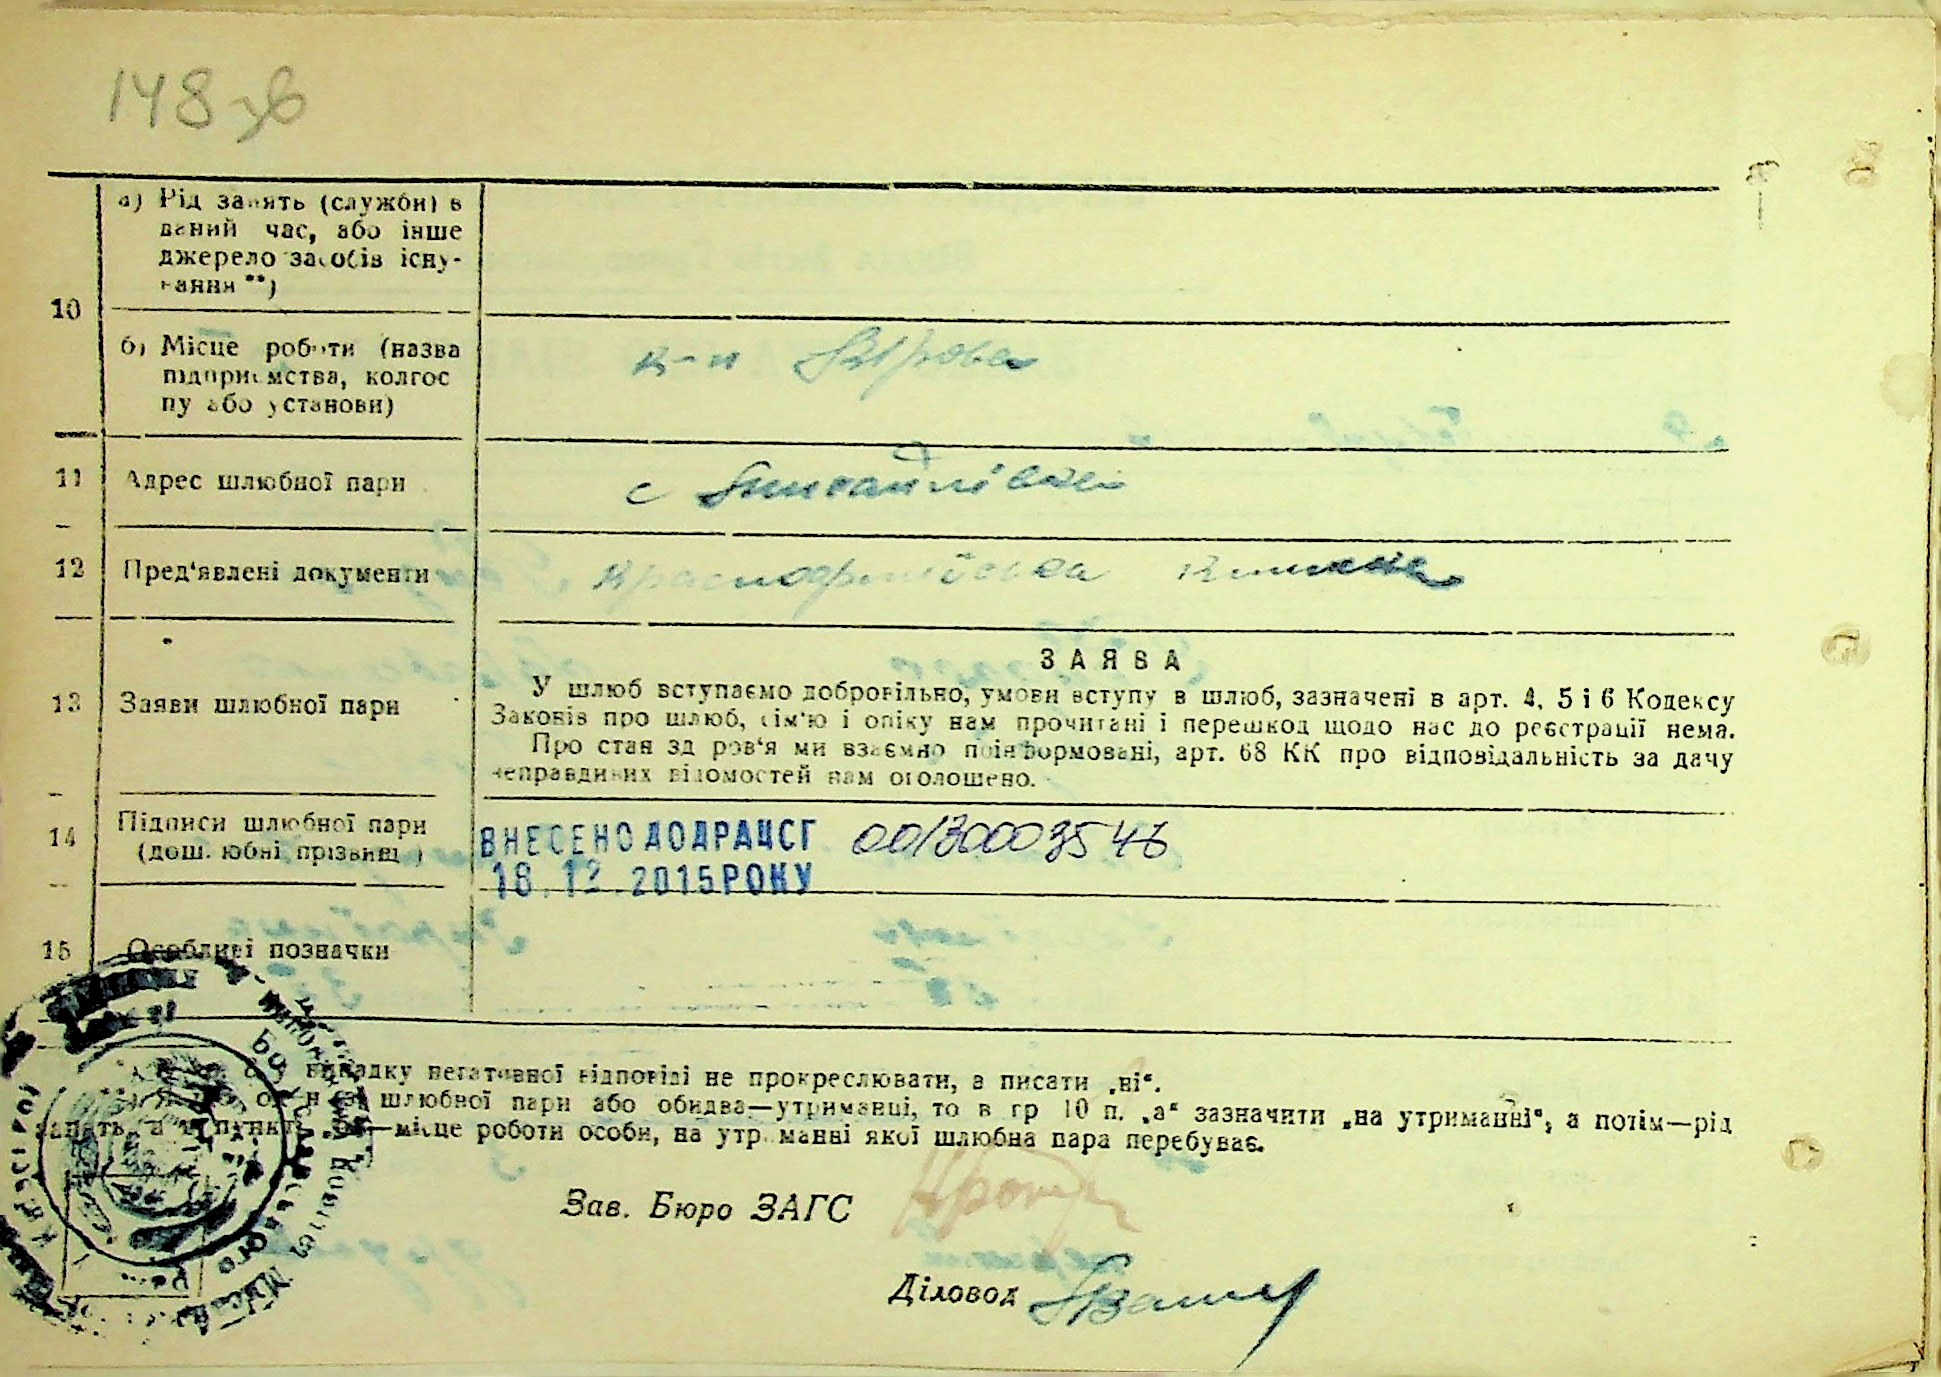 148 зв
а) Рід занять (служби) в
даний час, або інше
джерело засобів існу-
вання **)
10
б) Місце роботи (назва
підприємства, колгос
пу або установи)
к-п Кірова
11 Адрес шлюбної пари
с Михайлівка
12 Пред'явлені документи
Красноармійська книжка
ЗАЯВА
13 Заяви шлюбної пари
У шлюб вступаємо добровільно, умови вступу в шлюб, зазначені в арт. 4, 5 і 6 Кодексу
Законів про шлюб, сім'ю і опіку нам прочитані і перешкод щодо нас до реєстрації нема.
Про стан здоров'я ми взаємно поінформовані, арт. 68 КК про відповідальність за дачу
неправдивих відомостей нам оголошено.
14 Підписи шлюбної пари
(дошлюбні прізвищ )
ВНЕСЕНО ДО ДРАЦСГ 00130003546
18.12.2015 РОКУ
15 Особливі позначки
у випадку негативної відповіді не прокреслювати, а писати „ні“.
шлюбної пари або обидва—утриманці, то в гр 10 п. „а“ зазначити „на утриманні“, а потім—рід
занять, а в пункті „б“—місце роботи особи, на утриманні якої шлюбна пара перебуває.
Зав. Бюро ЗАГС
Діловод